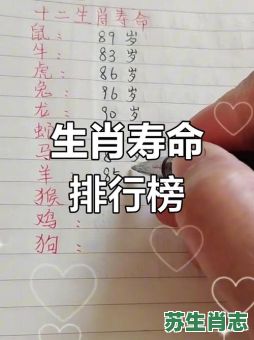 十二生肖寿命
鼠： 89 岁
牛： 83 岁
虎： 86 岁
兔： 96 岁
龙： 90 岁
蛇
生肖寿命
马
羊 85
排行榜
猴
鸡：
狗：
苏生肖志